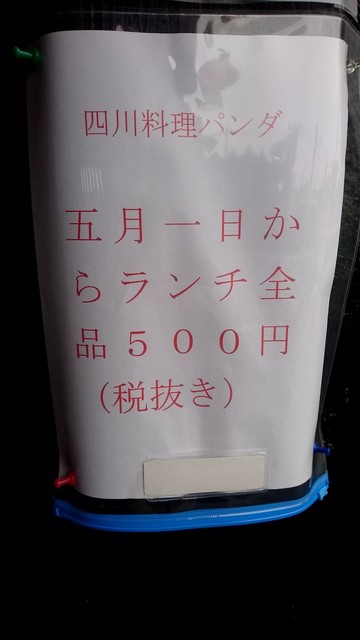 四川料理パンダ
五月一日か
らランチ全
品５００円
（税抜き）